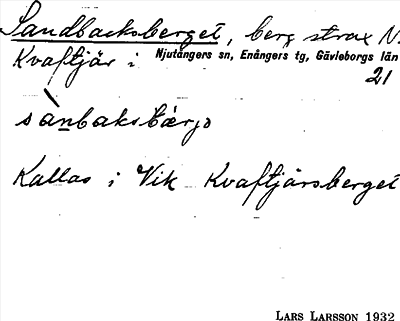 Sandbacksberget, berg strax N.
Kvaftjär i Njutångers sn, Enångers tg, Gävleborgs län
21
sànbaksbærjo
Kallas i Vik Kvaftjärsberget
LARS LARSSON 1932